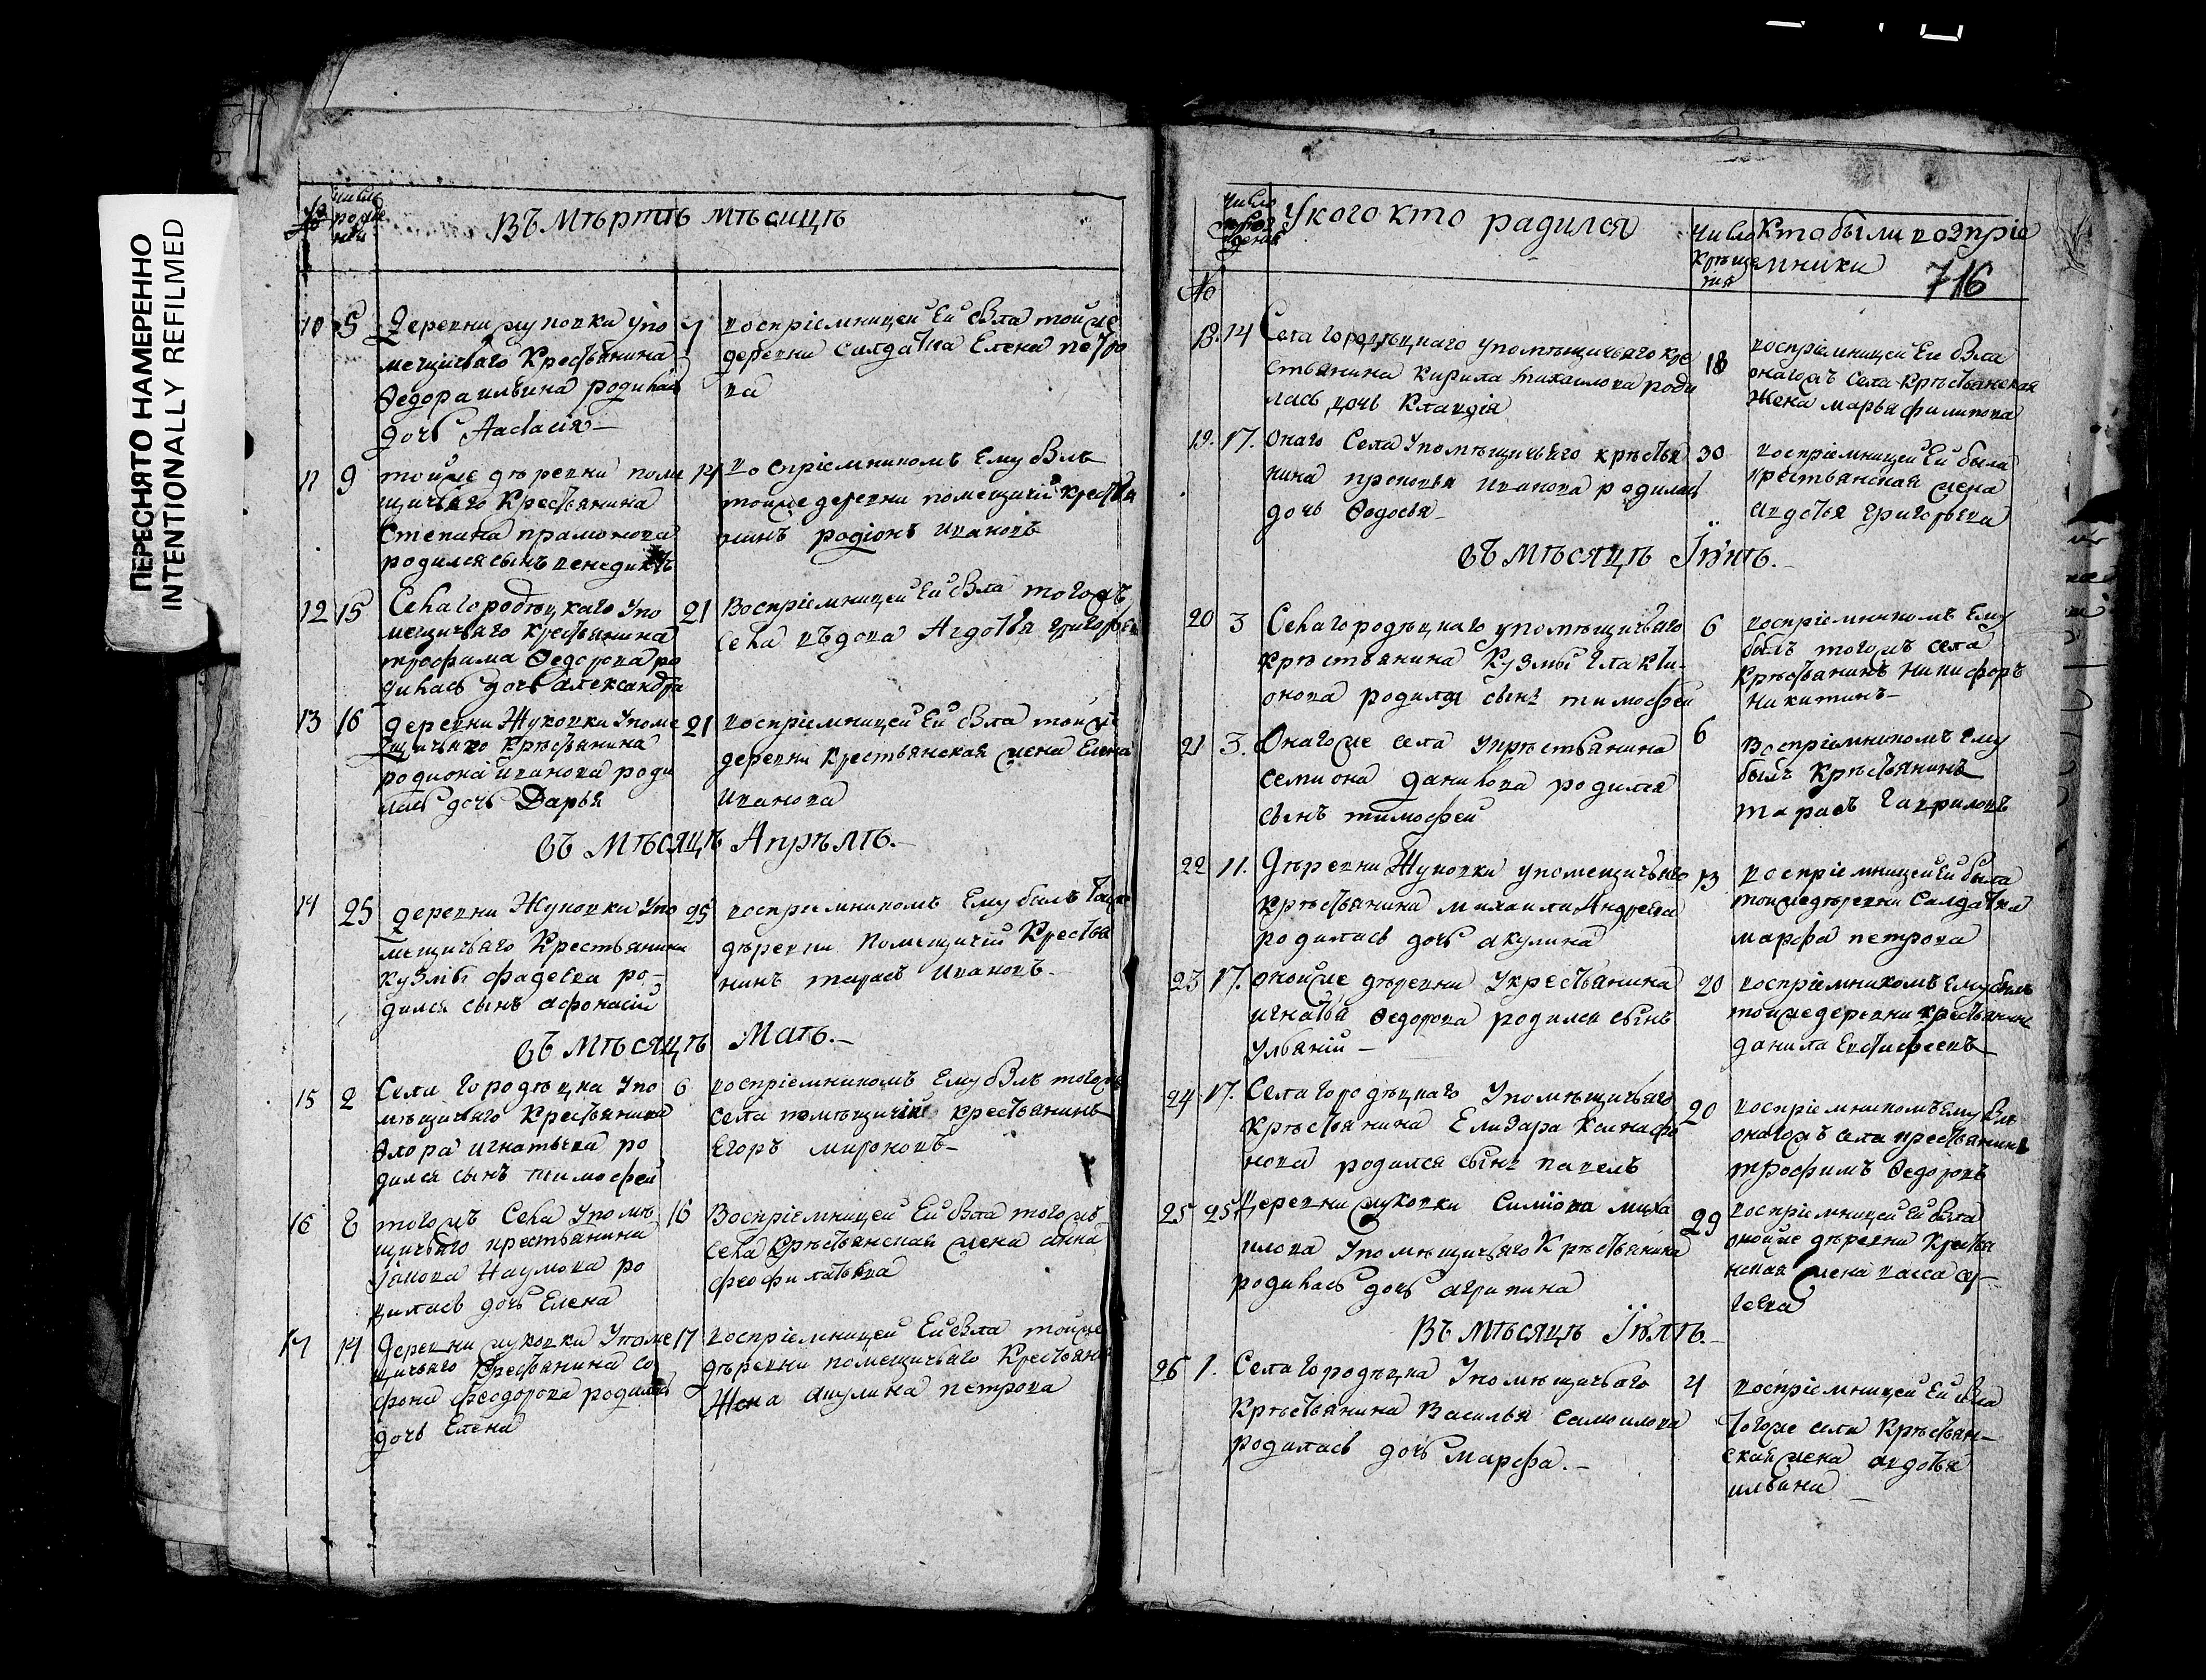 ПЕРЕСНЯТО НАМЕРЕННО
INTENTIONALLY REFILMED
№
число рожде нїи
въ мѣртѣ мѣсицѣ
10 5 Деревни жуковки упо 7
мещичьяго Крестьянина
Ѳедора ильина родилась
дочь Настасія
воспріемницей Ей была тойже
деревни салдатка Елена петро
ва
11 9 тойже дѣревни поме 14
щичьяго Крестьянина
Степана прамонова
родился сынъ венедиктъ
воспріемникомъ Ему былъ
тойже деревни помещичій крестья
нинъ родіонъ Ивановъ
12 15 Села городѣцкаго упо 21
мещичьяго крестьянина
трофима Ѳедорова ро
дилась дочь александра
Воспріемницей Ей была тогожъ
села въдова Авдотья григорьев
13 16 деревни Жуковки Упоме 21
щичьяго крѣстьянина
родиона иванова роди
лась дочь Дарья
воспріемницей Ей была тойже
деревни Крестьянская жена Елена
Иванова
въ мѣсяцѣ Апрѣлѣ.
14 25 деревни Жуковки Упо 25
мещичьяго Крестьянина
кузмы фадеева ро-
дился сынъ афонасій
воспріемникомъ Ему былъ тойже
дѣревни Помещичій Крестья
нинъ тарасъ Ивановъ.
въ мѣсяцѣ Маѣ.
15 2 Села Городѣцка Упо 6
мѣщичьяго Крестьянина
Ѳлора игнатьева ро
дился сынъ тимофей
воспріемникомъ Ему былъ тогожъ
села помѣщичій крестьянинъ
Егоръ мироновъ
16 8 тогожъ Села Упомѣ 16
щичьяго крестьянина
Іякова Наумова ро
дилась дочь Елена
Воспріемницей Ей была тогожъ
села крѣстьянская жена анна
феофилатьева
17 14 Деревни жуковки Упоме 17
щичьяго Крестьянина со
фона феодорова родилась
дочь Елена
воспріемницей Ей была тойже
дѣревни помещичьяго Крестьяни
Жена акулина петрова
№
число рождения
Укого кто радился
число крѣщения
Кто были возпріе
мники
716
18. 14 Села городѣцкаго упомѣщичьяго кре 18
стьянина кирила михаилова роди
лась дочь Клавдія
воспріемницей Ей была
онагожъ села крѣстьянская
жена марья филипова
19. 17. Онаго Села Упомѣщичьяго крѣстья 30
нина прокофья иванова родилась
дочь Ѳедосья
воспріемницей Ей была
крестьянская жена
Авдотья Григорьева
въ мѣсяцѣ Їюнѣ.
20 3 Села городѣцкаго упомѣщичьяго 6
крѣстьянина Кузмы Галакти-
онова родился сынъ тимофей
воспріемникомъ Ему
былъ тогожъ села
Крѣстьянинъ Никифоръ
Никитинъ
21 3. Онагоже села Укрѣстьянина 6
семиона данилова родился
сынъ тимофей
воспріемникомъ Ему
былъ Крѣстьянинъ
тарасъ Гавриловъ
22 11. Дѣревни Жуковки упомещичьяго 13
Крѣстьянина михаила Андреева
родилась дочь акулина
воспріемницей Ей была
тойже дѣревни Салдатка
марфа петрова
23 17. онойже дѣревни Укрестьянина 20
игнатья Ѳедорова родился сынъ
Ульяній
воспріемникомъ Ему былъ
тойже деревни крестьянинъ
данила Евстифеевъ
24 17. Села городѣцкаго Упомѣщичьяго 20
Крѣстьянина Елизара Ксинафо
нова родился сынъ павелъ
воспріемникомъ Ему былъ
онагожъ села крестьянинъ
трофимъ Ѳедоровъ
25 25 Деревни жуковки Симїона миха 29
илова Упомѣщичьяго Крѣстьянина
родилась дочь агрипина
воспріемницей Ей была
онойже дѣревни Крестья
нская жена васса
геева
въ мѣсяцѣ Їюлѣ.
26 1. Села городѣцка Упомѣщичьяго 4
Крѣстьянина Василья Самоилова
родилась дочь марфа.
воспріемницей Ей была
тогоже села Крѣстьян-
ская жена авдотья
ильина